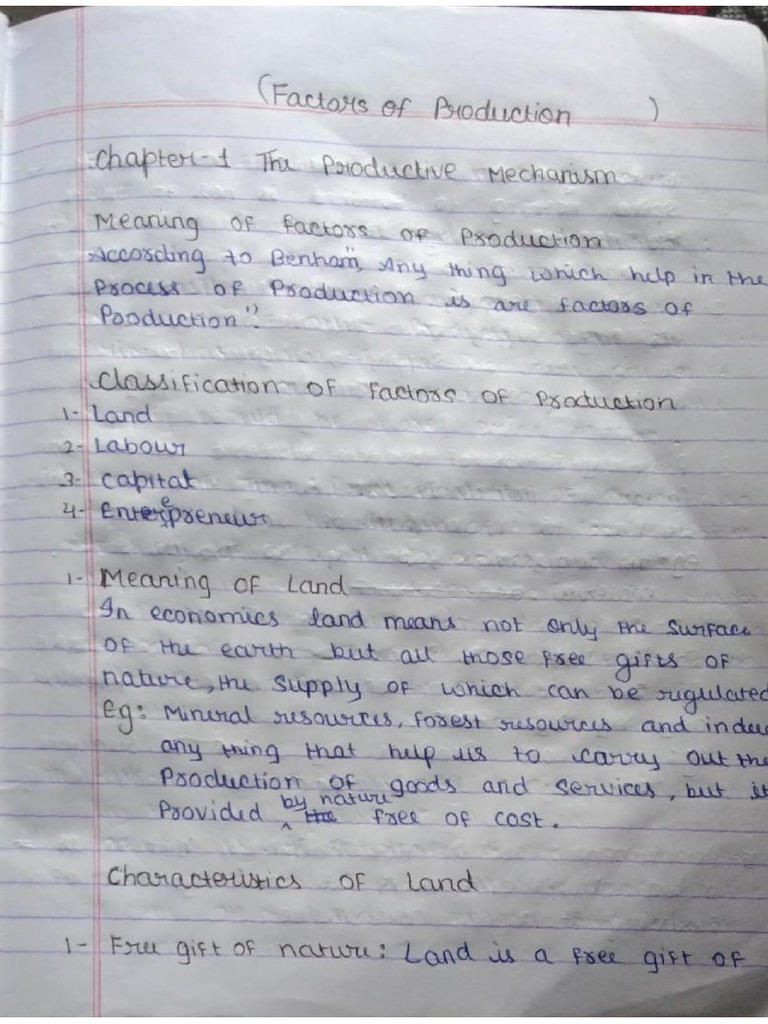 (Factors of Production )
Chapter-1 The Productive Mechanism
Meaning of factors of Production
According to Benham", Any thing which help in the
Process of Production is are factors of
Production".
Classification of Factors of Production
1- Land
2- Labour
3- Capital
4- Entrepreneur
1- Meaning of Land
In economics land means not only the surface
of the earth but all those free gifts of
nature, the supply of which can be regulated
Eg: Mineral resources, forest resources and indee
any thing that help us to carry out the
Production of goods and services, but it
by nature
Provided ^ the free of cost.
Characteristics of Land
1- Free gift of nature: Land is a free gift of